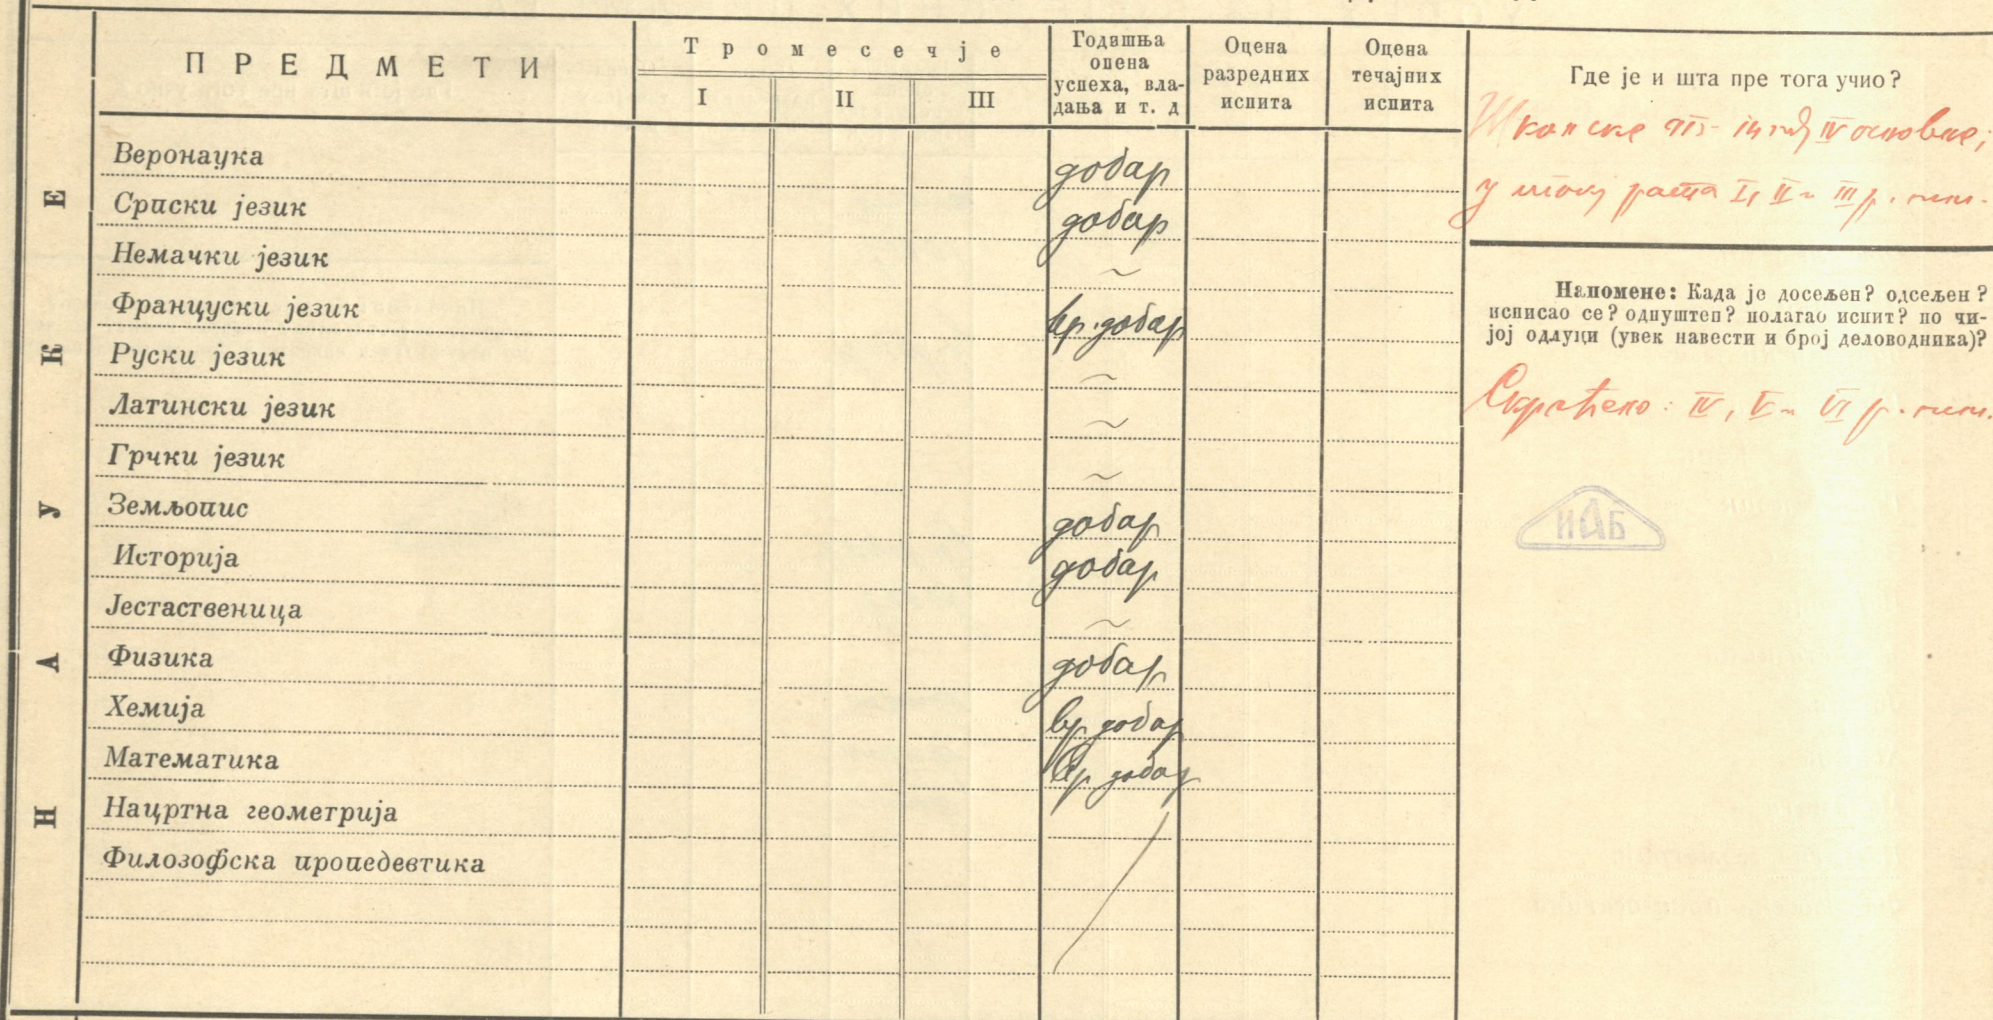 ПРЕДМЕТИ
Тромесечје
I II III
Годишња
оцена
успеха, вла-
дања и т. д
Оцена
разредних
испита
Оцена
течајних
испита
НАУКЕ
Веронаука добар
Српски језик добар
Немачки језик ~
Француски језик вр. добар
Руски језик ~
Латински језик ~
Грчки језик ~
Земљопис добар
Историја добар
Јестаственица ~
Физика добар
Хемија вр. добар
Математика вр. добар
Нацртна геометрија
Филозофска пропедевтика
Где је и шта пре тога учио?
IV основне;
у I, II и III р. гим.
Напомене: Када је досељен? одсељен?
исписао се? одпуштен? полагао испит? по чи-
јој одлуци (увек навести и број деловодника)?
Скраћено: IV, V и VI р. гим.
ИАБ